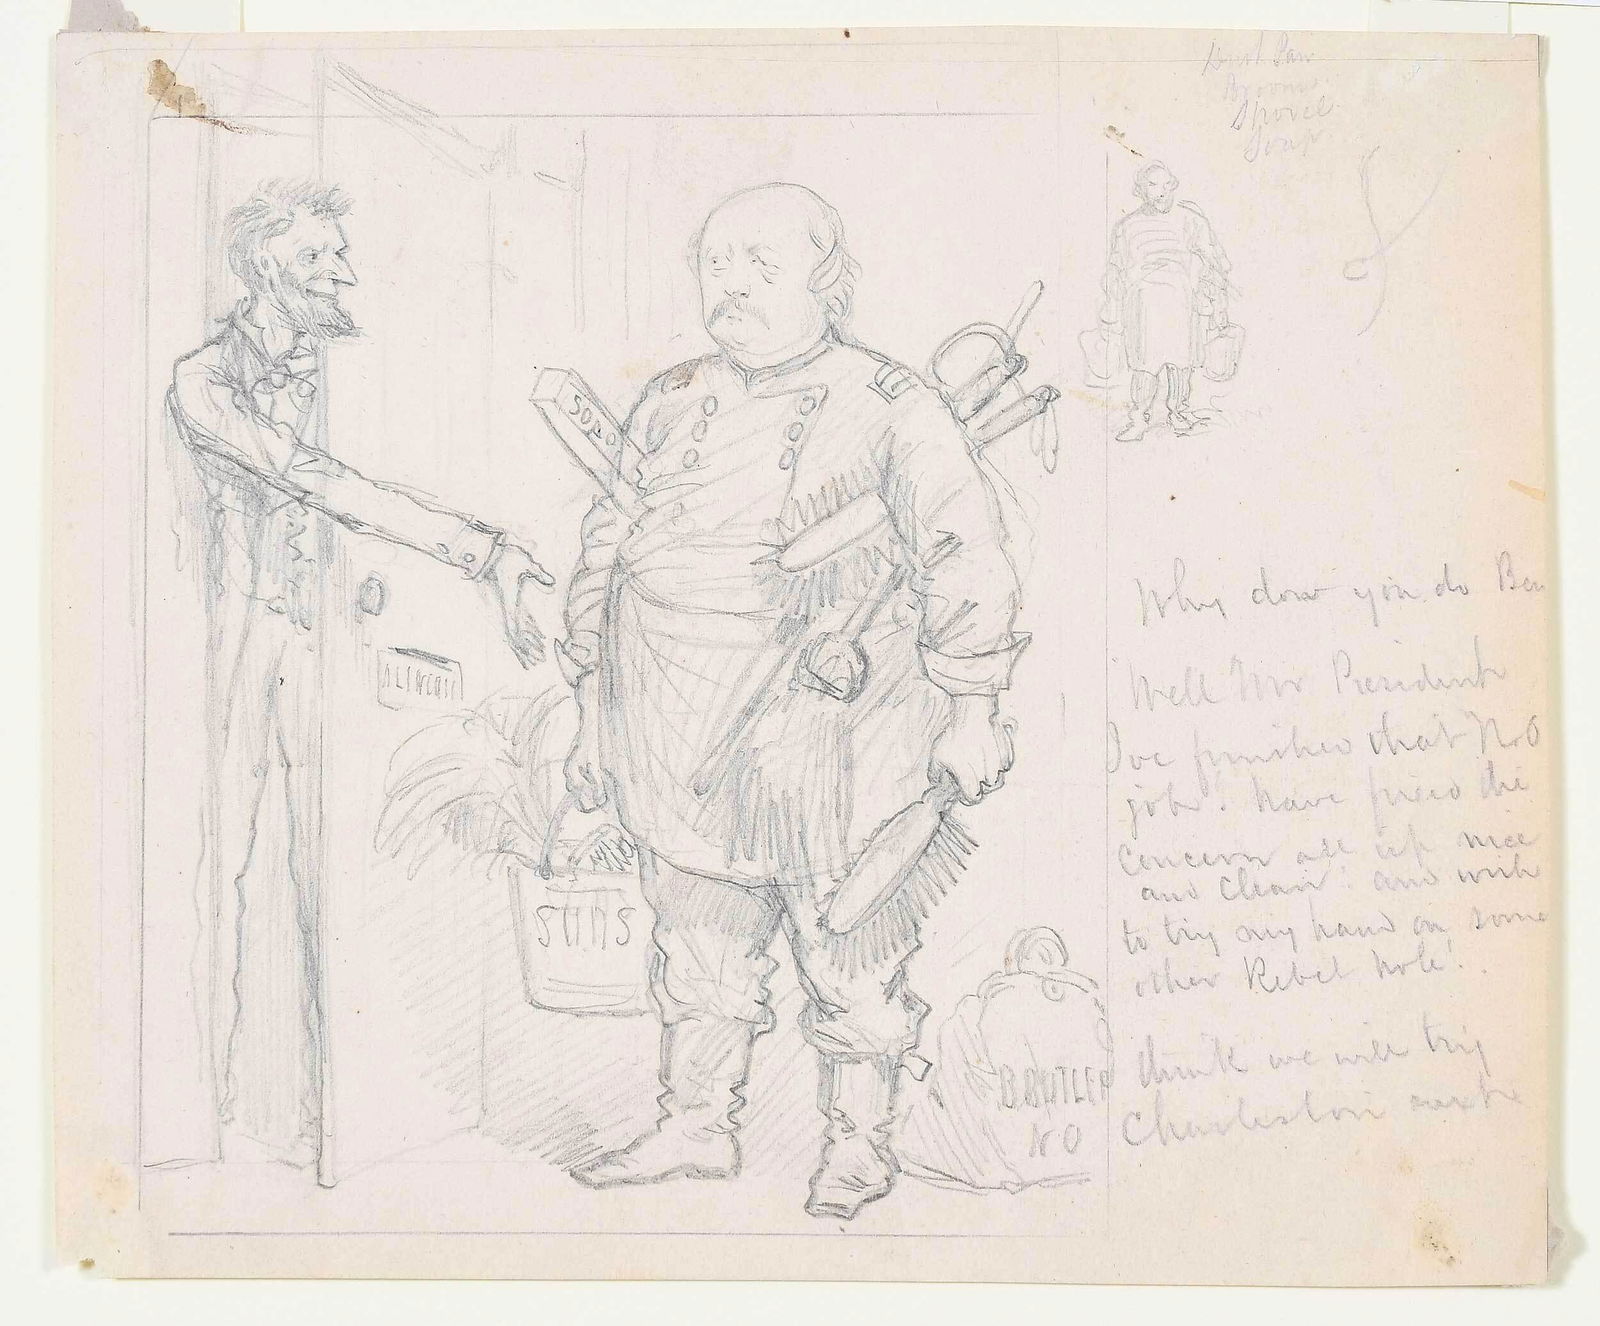 Dust Pan
Brooms
Shovel
Soap
SOAP
Why dow you do Ben
Well Mr President
I've finished that N.O
job! have fixed the
concern all up nice
and clean! and wish
to try my hand on some
other Rebel hole!.
think we will try
Charleston next
A LINCOLN
SUDS
B BUTLER
N O